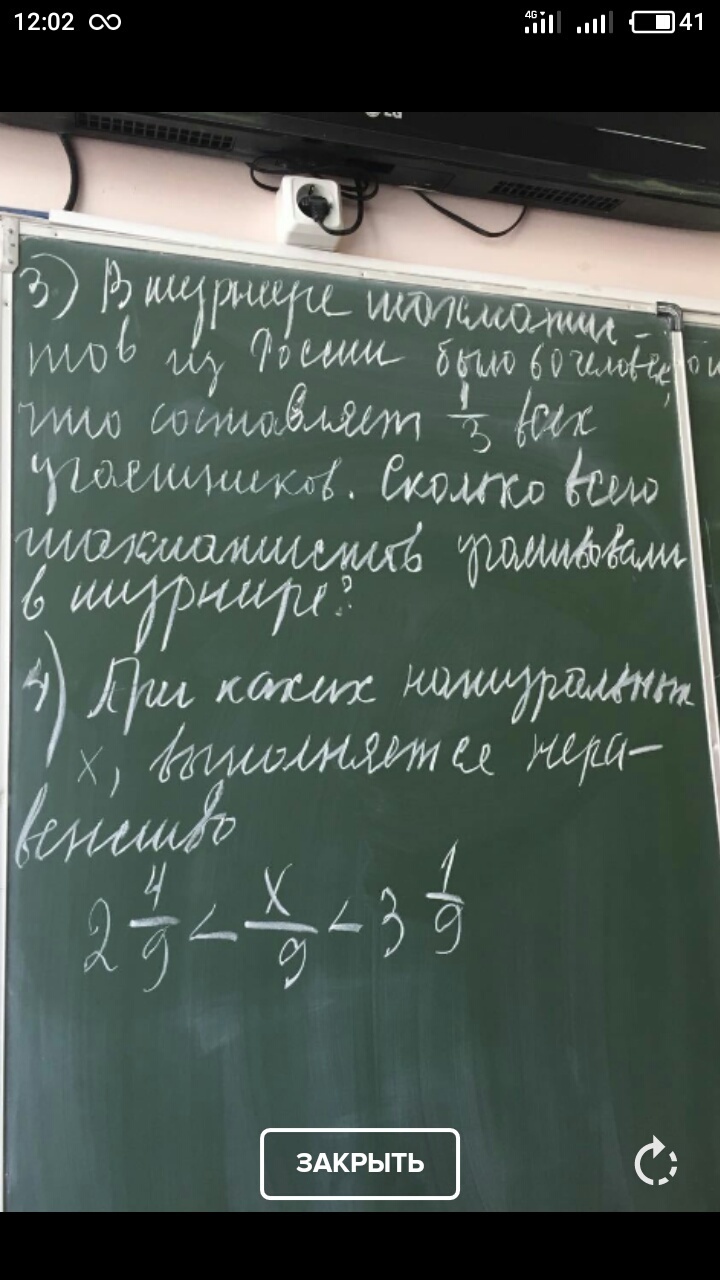 12:02
4G
41
LG
3) В турнире шахматис-
тов из России было 60 человек,
что составляет 1/3 всех
участников. Сколько всего
шахматистов участвовали
в турнире?
4) При каких натуральных
x, выполняется нера-
венство
2 4/9 < x/9 < 3 1/9
ЗАКРЫТЬ